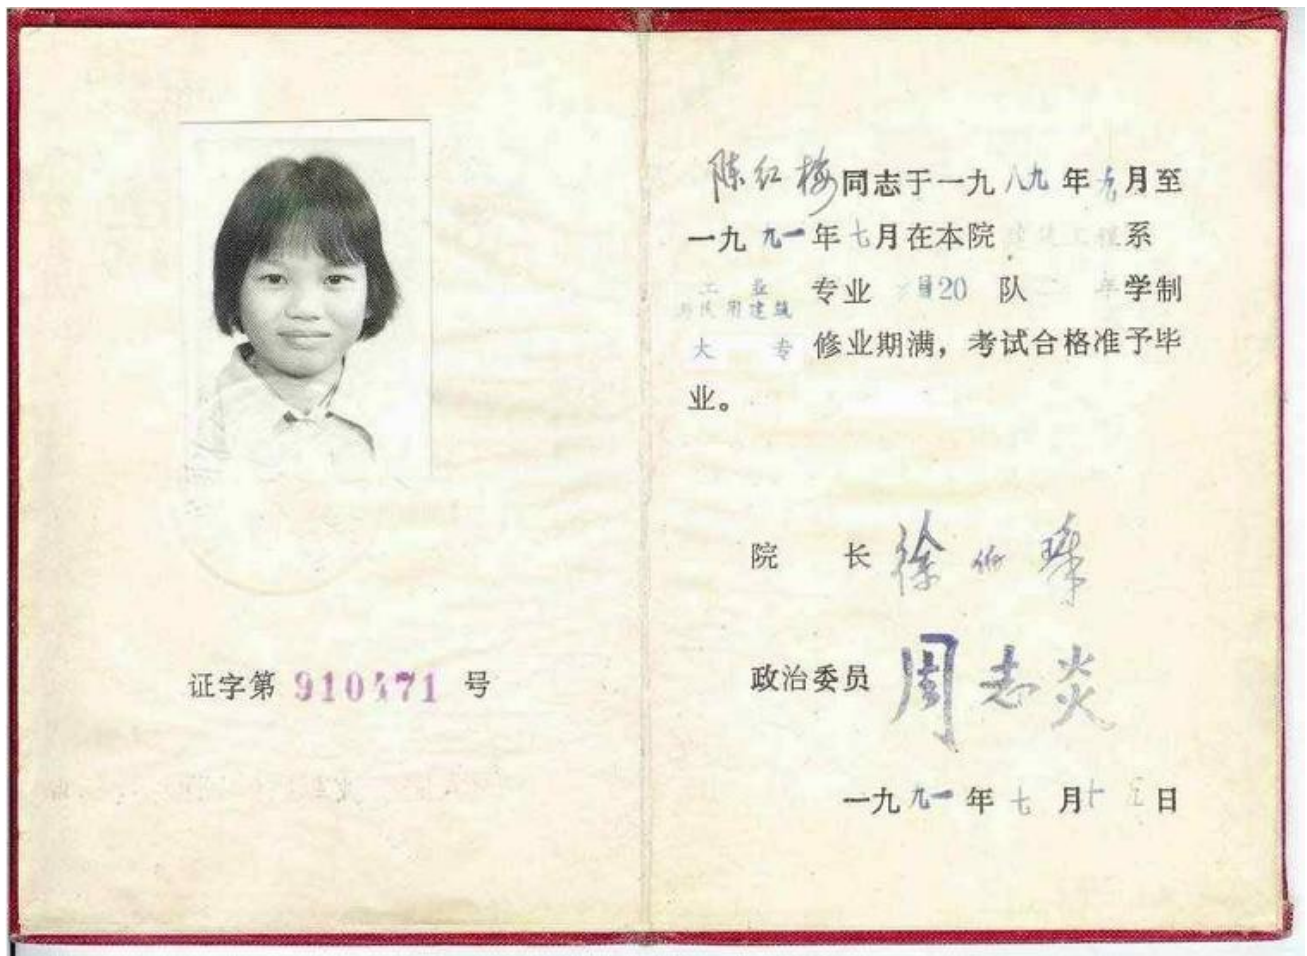 证字第 910471 号
陈红梅同志于一九八九年九月至
一九九一年七月在本院建筑工程系
工业
与民用建筑 专业 20 队二年学制
大专修业期满，考试合格准予毕
业。
院长 徐
政治委员 周志炎
一九九一年七月十五日